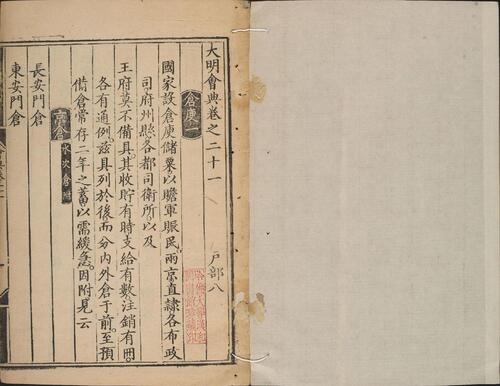 大明會典卷之二十一
戶部八
倉庾一
國家設倉庾儲粟以贍軍賑民兩京直隷各布政
司府州縣各都司衛所以及
王府莫不備具其收貯有時支給有數注銷有冊
各有通例茲具列於後而分内外倉于前至預
備倉常存二年之蓄以需緩急因附見云
京倉
水次倉附
長安門倉
東安門倉